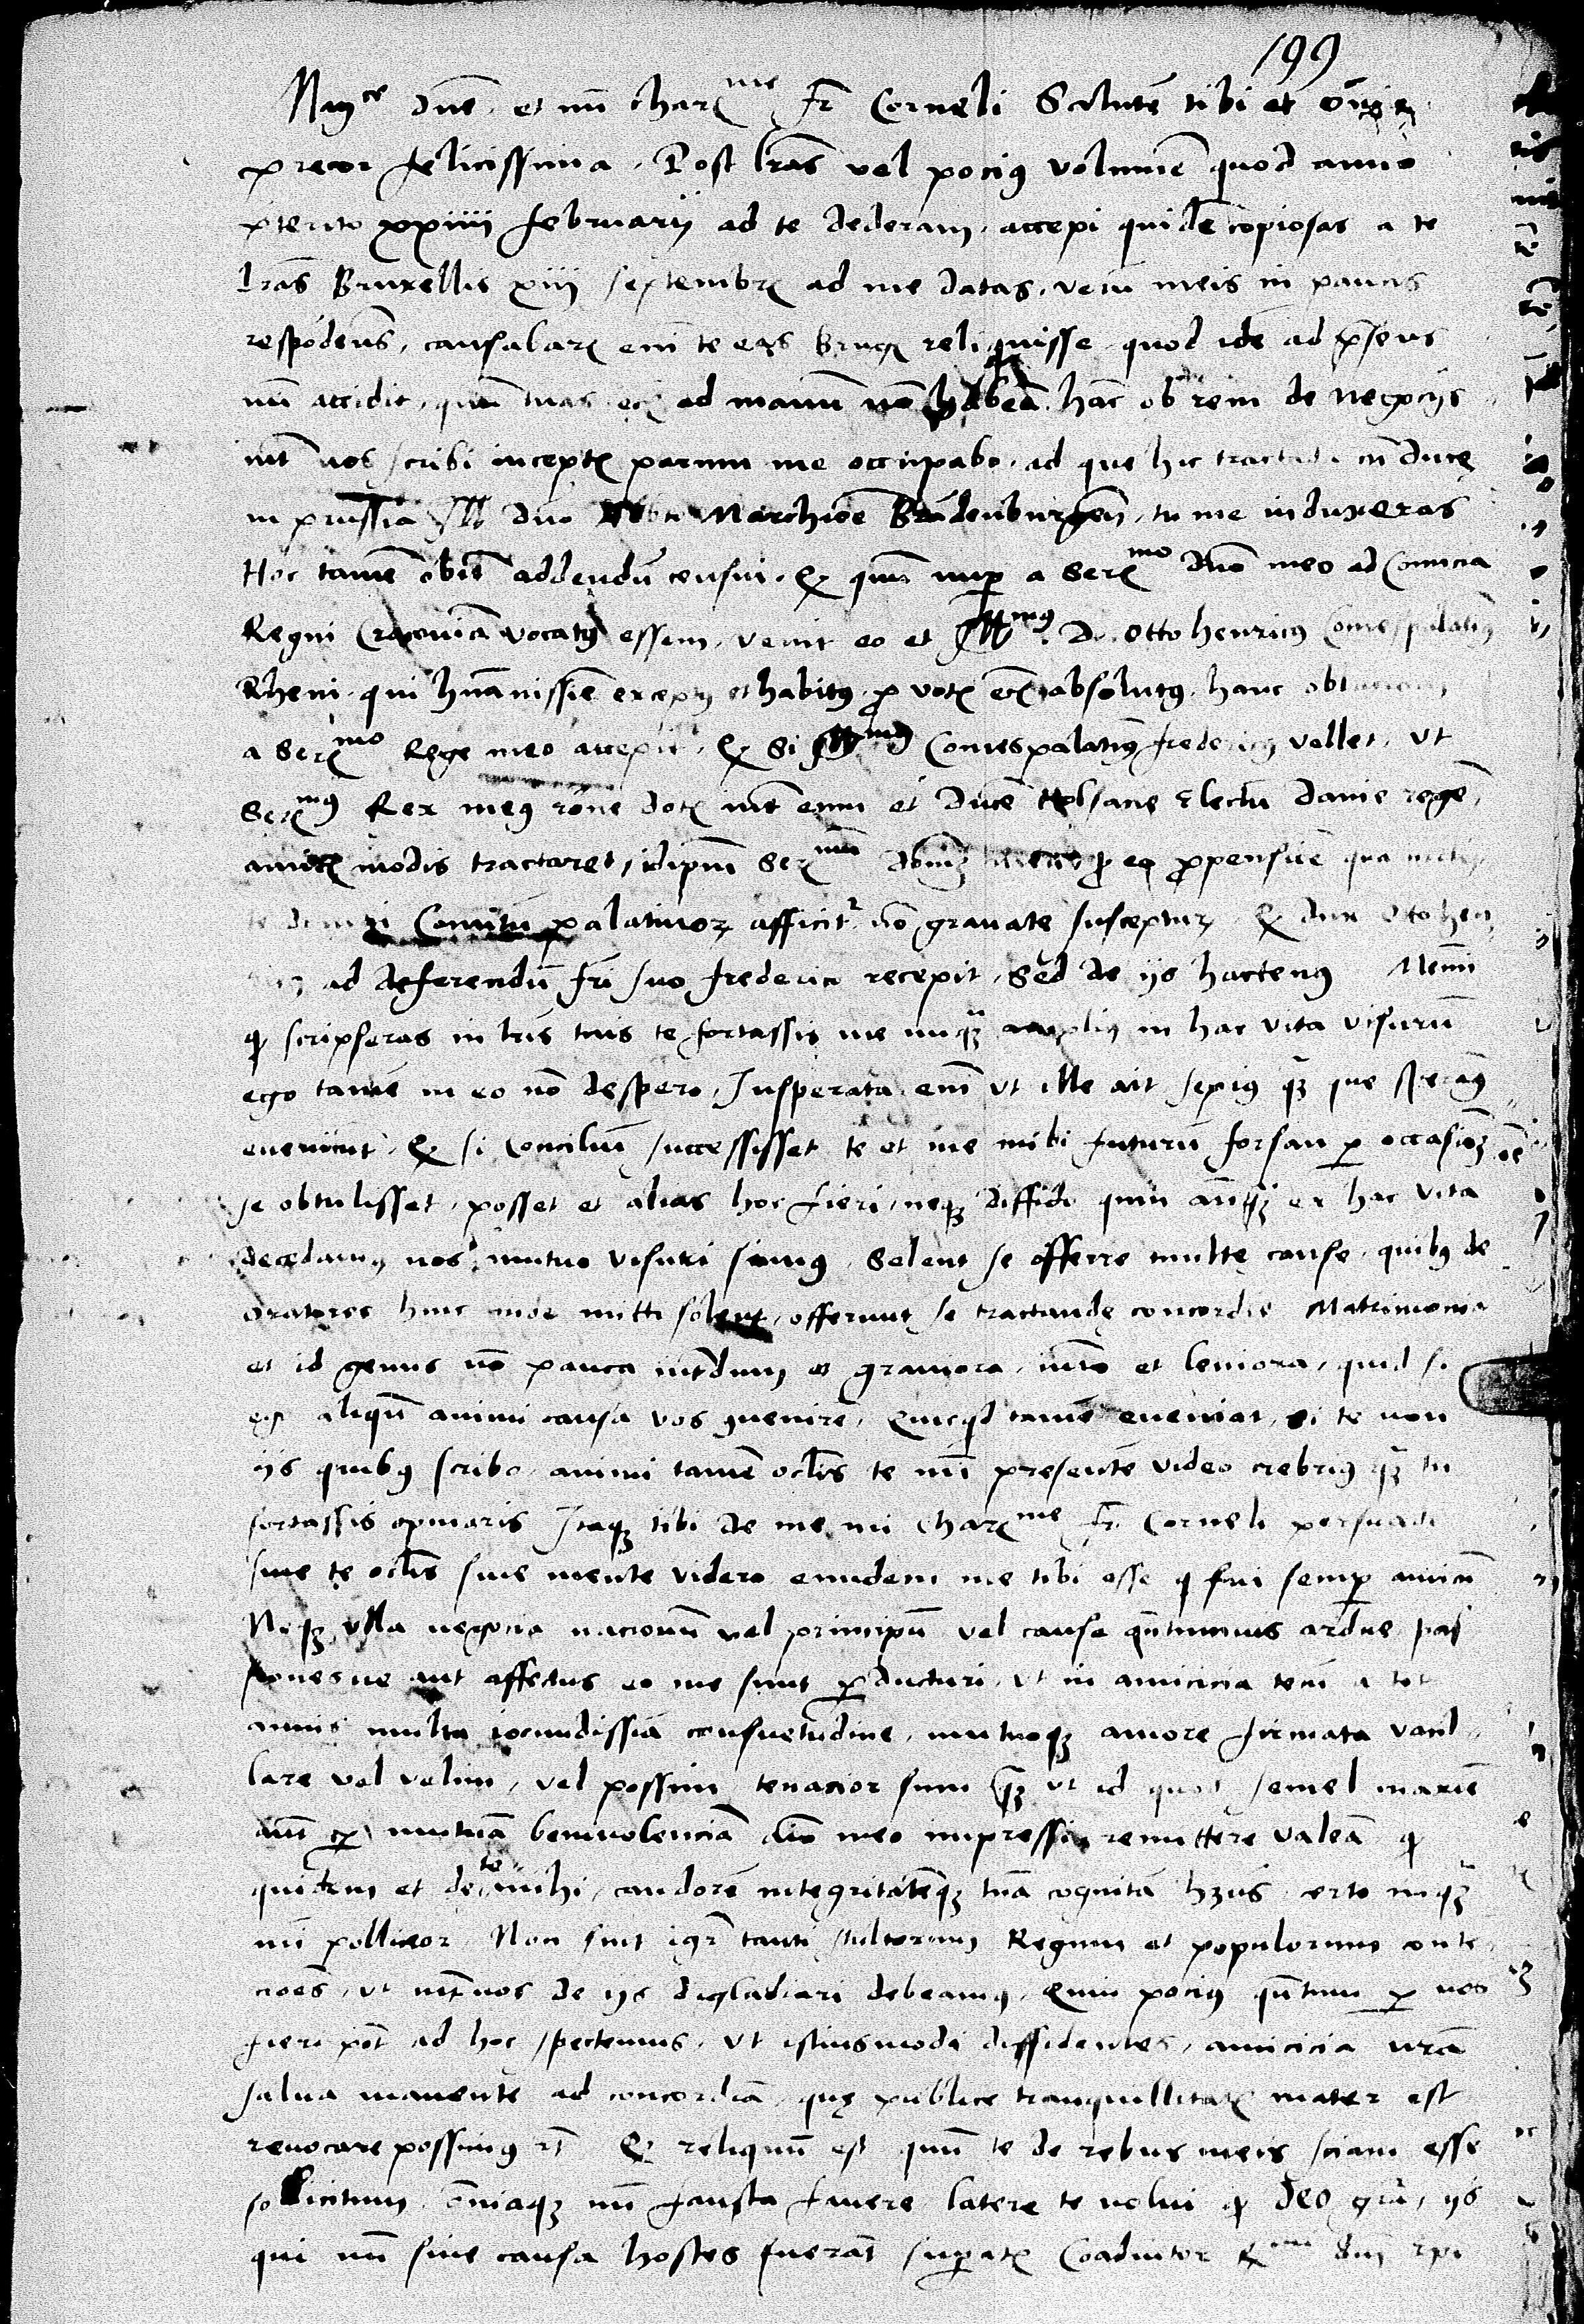 199
Mag^ce dne et mi char^me fr Corneli Salute tibi et
precor felicissima. Post lras vel pocius volumen quod anno
pterito xxiiii februarii ad te dederam, accepi quide copiosas a te
lras Bruxellis xiiii septembr ad me datas, veru meis in paucis
respodens, causabar eni te eas Brug reliquisse quod ide ad psens
mi accidit, quu tuas ad manu no habea. hac ob rem de negociis
int nos scribi incept parum me occupabo, ad que hic tractada cu duce
in prussia Ill dno Marchioe Bradenburgen, tu me induxeras
Hoc tame obit addendu censui, q quu nup a Ser^mo dno meo ad Comicia
Regni Cracovia vocatus essem, venit eo et Ill^mus D. Otto henricus Comes palatinus
Rheni, qui humanissime exceptus et habitus, p vot absolutus, hanc
a Ser^mo Rege meo accepit, q si Ill^mus Comes palatinus fredericus vellet, ut
Ser^mus Rex meus rone dot int eum et duce Holsacie Electu danie rege,
amicis modis tractaret, idipm Ser^mum propensiue qua
Comitu palatinor afficit no gravate susceptur, q dux Ottohen
ad deferendu fri suo frederico recepit, Sed de iis hactenus Memi
q scripseras in lris tuis te fortassis me nuqz amplius in hac vita visuru
ego tame in eo no despero, Insperata eni ut ille ait sepius qz que speramus
eveniunt, q si conciliu successisset te et me mihi futuru forsan p occasioz
se obtulisset, posset et alias hoc fieri, neqz diffido quin anteqz ex hac vita
decedamus nos mutuo visuri simus, Solent se offerre multe cause quibus de
oratores huc inde mitti solent, offerunt se tractande concordie Matrimonia
et id genus no pauca interdum et graviora, imo et leviora, quid si
ego aliqu animi causa vos convenire, Quicqd tame eveniat, si te non
iis quibus scribo, animi tame oclis te mi presente video crebrius qz tu
fortassis opinaris Itaqz tibi de me mi Char^me fr Corneli persuade
sive te oclis sive mente videro eundem me tibi esse q fui semp amicu
Neqz ulla negocia nacionu vel principu vel cause quntumvis ardue pas
sionesve aut affectus eo me sunt perducturi, ut in amicicia tecu a tot
annis multa iocundissia consuetudine, mutuoqz amore firmata vacil
lare vel velim, vel possim tenacior sum qz ut id quod semel maxie
mutua benivolencia aio meo impressi remittere valea q
quidem et de te mihi, candore integritateqz tua cognita hns certo
mi polliceor Non sint igr tanti stultorum Regum et populorum conte
cioes, ut int nos de iis digladiari debeamus, Quin pocius quntum p nos
fieri pot ad hoc spectemus, ut istiusmodi dissidentes, amicicia nra
salva manente ad concordia, que publice tranquillitatis mater est
revocare possimus. Q reliquu est quu te de rebus meis sciam esse
sollicitum, omiaqz mi fausta favere latere te nolui q deo gra, iis
qui mi sine causa hostes fuerat superatis Coadiutor R^mi dni epi